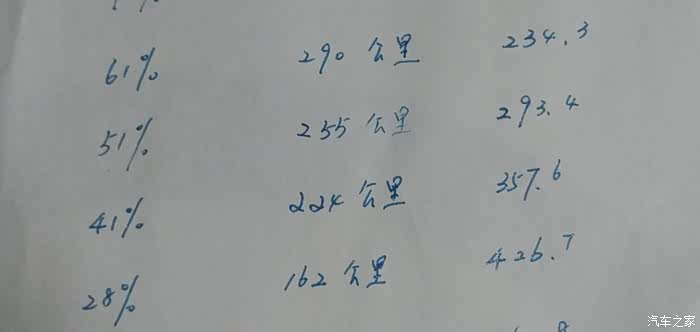 61% 290 公里 234.3
51% 255 公里 293.4
41% 224 公里 357.6
28% 162 公里 426.7
汽车之家